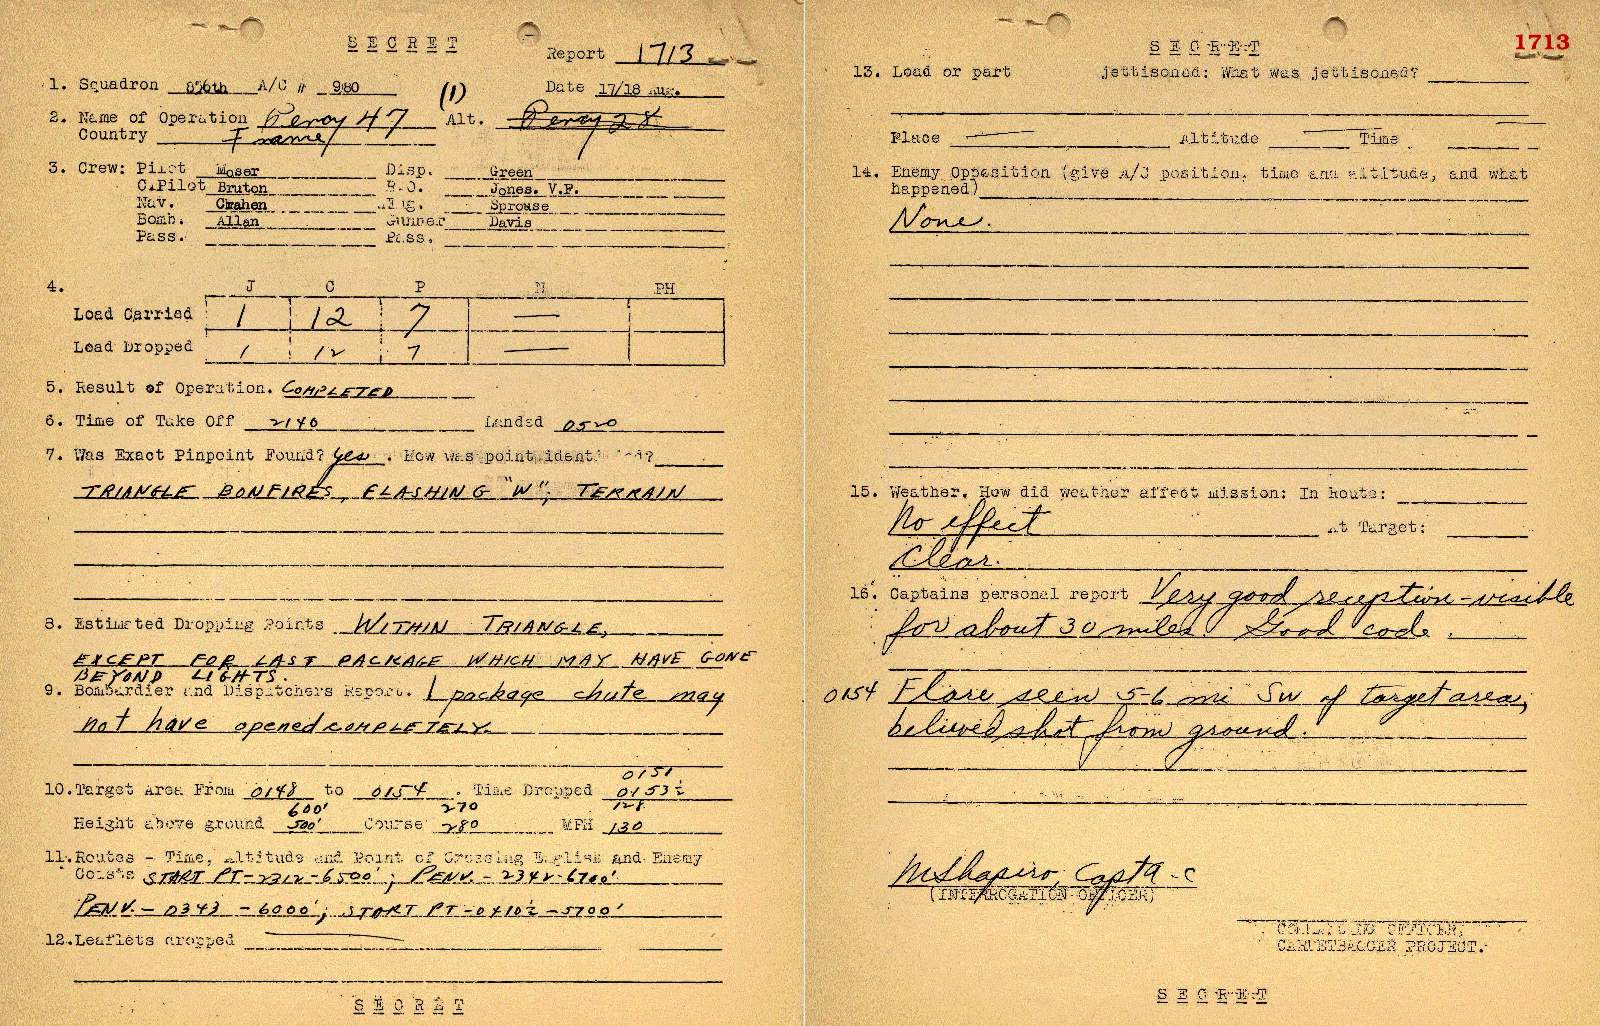 SECRET
Report 1713
1. Squadron 856th A/C # 980 (1) Date 17/18 Aug.
2. Name of Operation Percy 47 Alt. Percy 28
Country France
3. Crew: Pilot Moser Disp. Green
C.Pilot Bruton R.O. Jones. V.F.
Nav. Eng. Sprouse
Bomb. Allan Gunner Davis
Pass. Pass.
4. J C P N PH
Load Carried 1 12 7 —
Load Dropped 1 12 7 —
5. Result of Operation. COMPLETED
6. Time of Take Off 2140 Landed 0520
7. Was Exact Pinpoint Found? yes. How was point identified?
TRIANGLE BONFIRES, FLASHING "W"; TERRAIN
8. Estimated Dropping Points WITHIN TRIANGLE,
EXCEPT FOR LAST PACKAGE WHICH MAY HAVE GONE
BEYOND LIGHTS.
9. Bombardier and Dispatchers Report. 1 package chute may
not have opened COMPLETELY.
0151
10. Target Area From 0148 to 0154. Time Dropped 0153½
600' 270 128
Height above ground 500' Course 280 MPH 130
11. Routes - Time, Altitude and Point of Crossing English and Enemy
Coasts START PT-2312-6500'; PENV.-2342-6700'
PENV.-0343-6000'; START PT-0410½-5700'
12. Leaflets dropped —
SECRET
SECRET
1713
13. Load or part jettisoned: What was jettisoned?
Place — Altitude — Time
14. Enemy Opposition (give A/C position, time and altitude, and what
happened)
None.
15. Weather. How did weather affect mission: In Route:
No effect At Target:
Clear.
16. Captains personal report Very good reception-visible
for about 30 miles Good code.
0154 Flare seen 5-6 mi SW of target area,
believed shot from ground.
M Shapiro, Capt A-C
(INTERROGATION OFFICER)
COMMANDING OFFICER,
CARPETBAGGER PROJECT.
SECRET